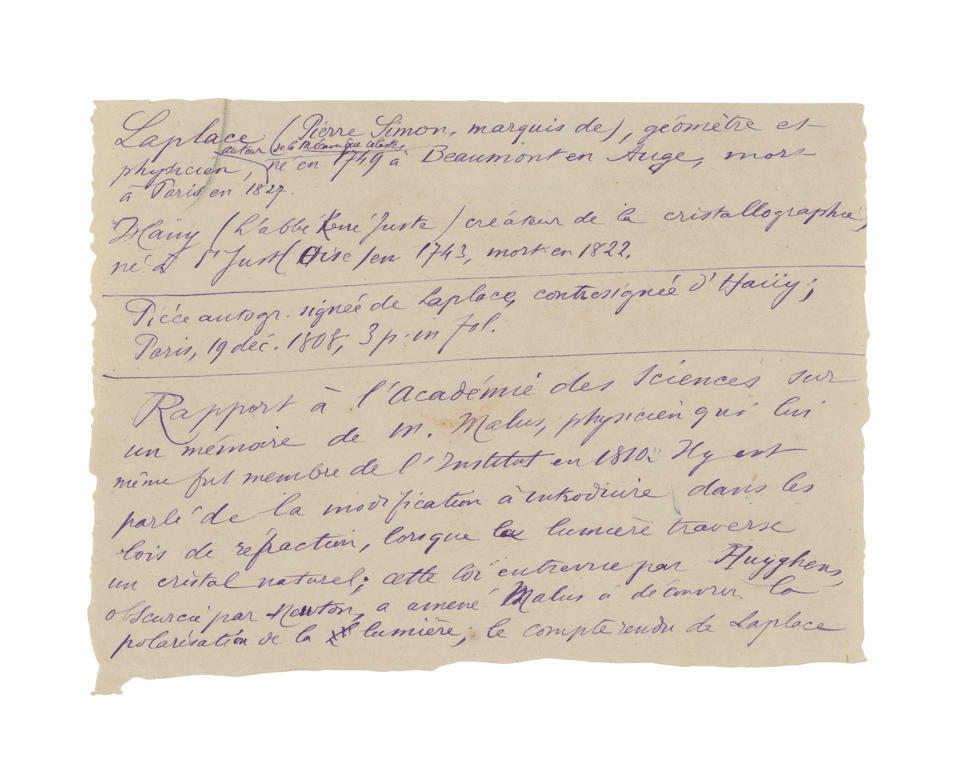 Laplace (Pierre Simon, marquis de), géomètre et
auteur de la Mécanique céleste,
physicien, né en 1749 à Beaumont en Auge, mort
à Paris en 1827.
Haüy (L'abbé René Juste) créateur de la cristallographie,
né à St Just (Oise) en 1743, mort en 1822.
Pièce autogr. signée de Laplace, contresignée d'Haüy;
Paris, 19 déc. 1808, 3 p. in fol.
Rapport à l'Académie des Sciences sur
un mémoire de M. Malus, physicien qui lui
même fut membre de l'Institut en 1810. Il y est
parlé de la modification à introduire dans les
lois de réfraction, lorsque la lumière traverse
un cristal naturel; cette loi entrevue par Huyghens,
obscurcie par Newton, a amené Malus à découvrir la
polarisation de la lumière; le compte rendu de Laplace